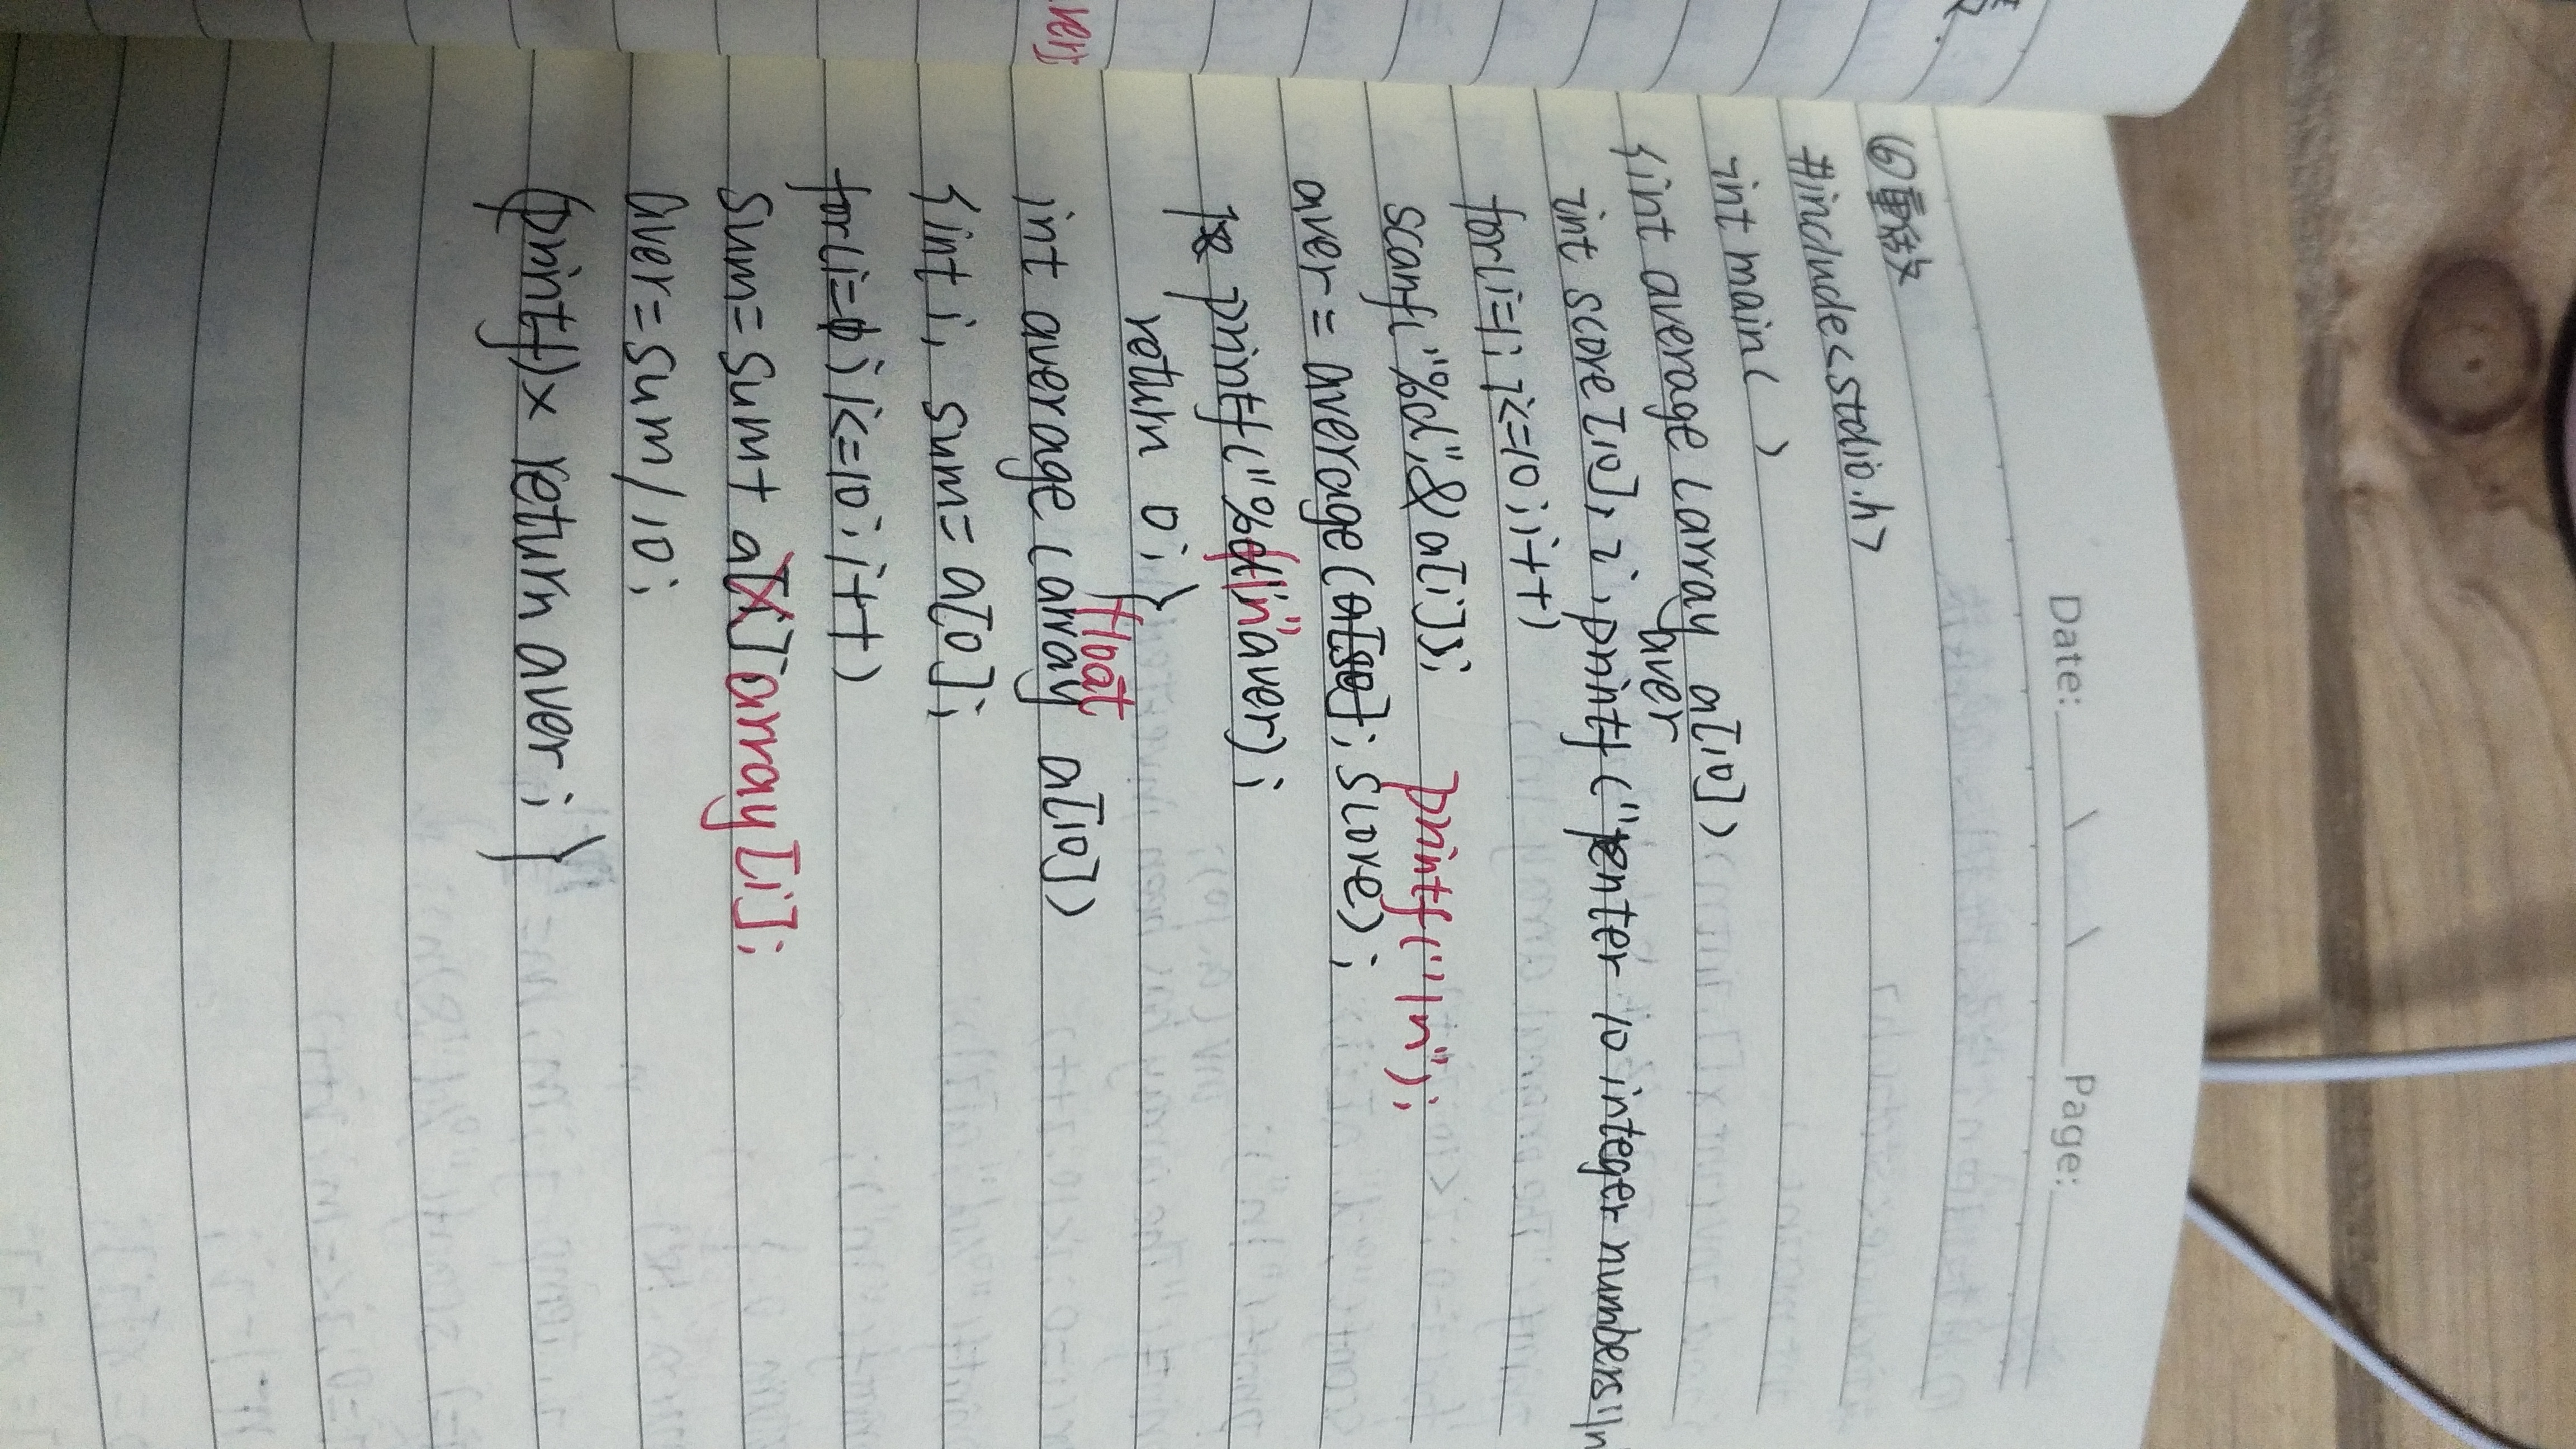 Date: Page:
⑥重做
#include<stdio.h>
int main( )
{int average (array a[10])
int score[10], i, aver printf("enter 10 integer numbers:\n
for(i=1; i<=10; i++)
scanf("%d",&a[i]); printf("\n");
aver = average( score);
printf("%d\n"aver);
return 0;}
int average (float array a[10])
{int i, sum= a[0];
for(i= ; i<=10; i++)
sum= sum+ a[X] array[i];
aver=sum/10;
(printf)x return aver; }
ver);